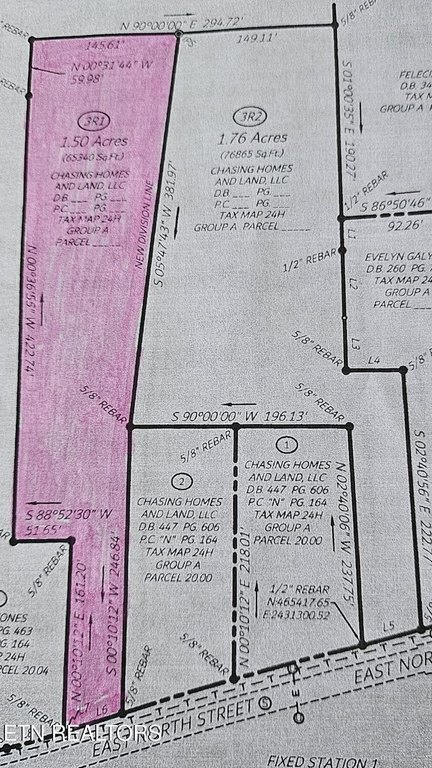 N 90°00'00" E 294.72'
145.61'
149.11'
5/8" REBAR
N 00°31'44" W
59.98'
3R1
1.50 Acres
(65340 Sq.Ft.)
CHASING HOMES
AND LAND, LLC
D.B. ___ PG. ___
P.C. ___ PG. ___
TAX MAP 24H
GROUP A
PARCEL _____
3R2
1.76 Acres
(76865 Sq.Ft.)
CHASING HOMES
AND LAND, LLC
D.B. ___ PG. ___
P.C. ___ PG. ___
TAX MAP 24H
GROUP A PARCEL _____
NEW DIVISION LINE
S 05°47'43" W 381.97'
S 01°00'35" E 190.27'
FELECI
D.B. 34
TAX M
GROUP A P
1/2" REBAR
S 86°50'46"
92.26'
L1
1/2" REBAR
L2
EVELYN GALY
D.B. 260 PG.
TAX MAP 24
GROUP A
PARCEL
L3
5/8" REBAR
L4
5/8"
N 00°36'55" W 422.74'
5/8" REBAR
S 90°00'00" W 196.13'
5/8" REBAR
2
CHASING HOMES
AND LAND, LLC
D.B. 447 PG. 606
P.C. "N" PG. 164
TAX MAP 24H
GROUP A
PARCEL 20.00
1
CHASING HOMES
AND LAND, LLC
D.B. 447 PG. 606
P.C. "N" PG. 164
TAX MAP 24H
GROUP A
PARCEL 20.00
N 02°40'06" W 237.75'
S 02°40'56" E 222.77'
S 88°52'30" W
51.65'
5/8" REBAR
N 00°10'12" E 161.20'
S 00°10'12" W 246.84'
N 00°10'12" E 218.01'
1/2" REBAR
N:465417.65
E:2431300.52
ONES
PG. 463
G. 164
P 24H
CEL 20.04
5/8" REBAR
5/8" REBAR
5/8" REBAR
L7
L6
L5
EAST NORTH STREET
EAST NOR
E
S
FIXED STATION 1
ETN REALTORS